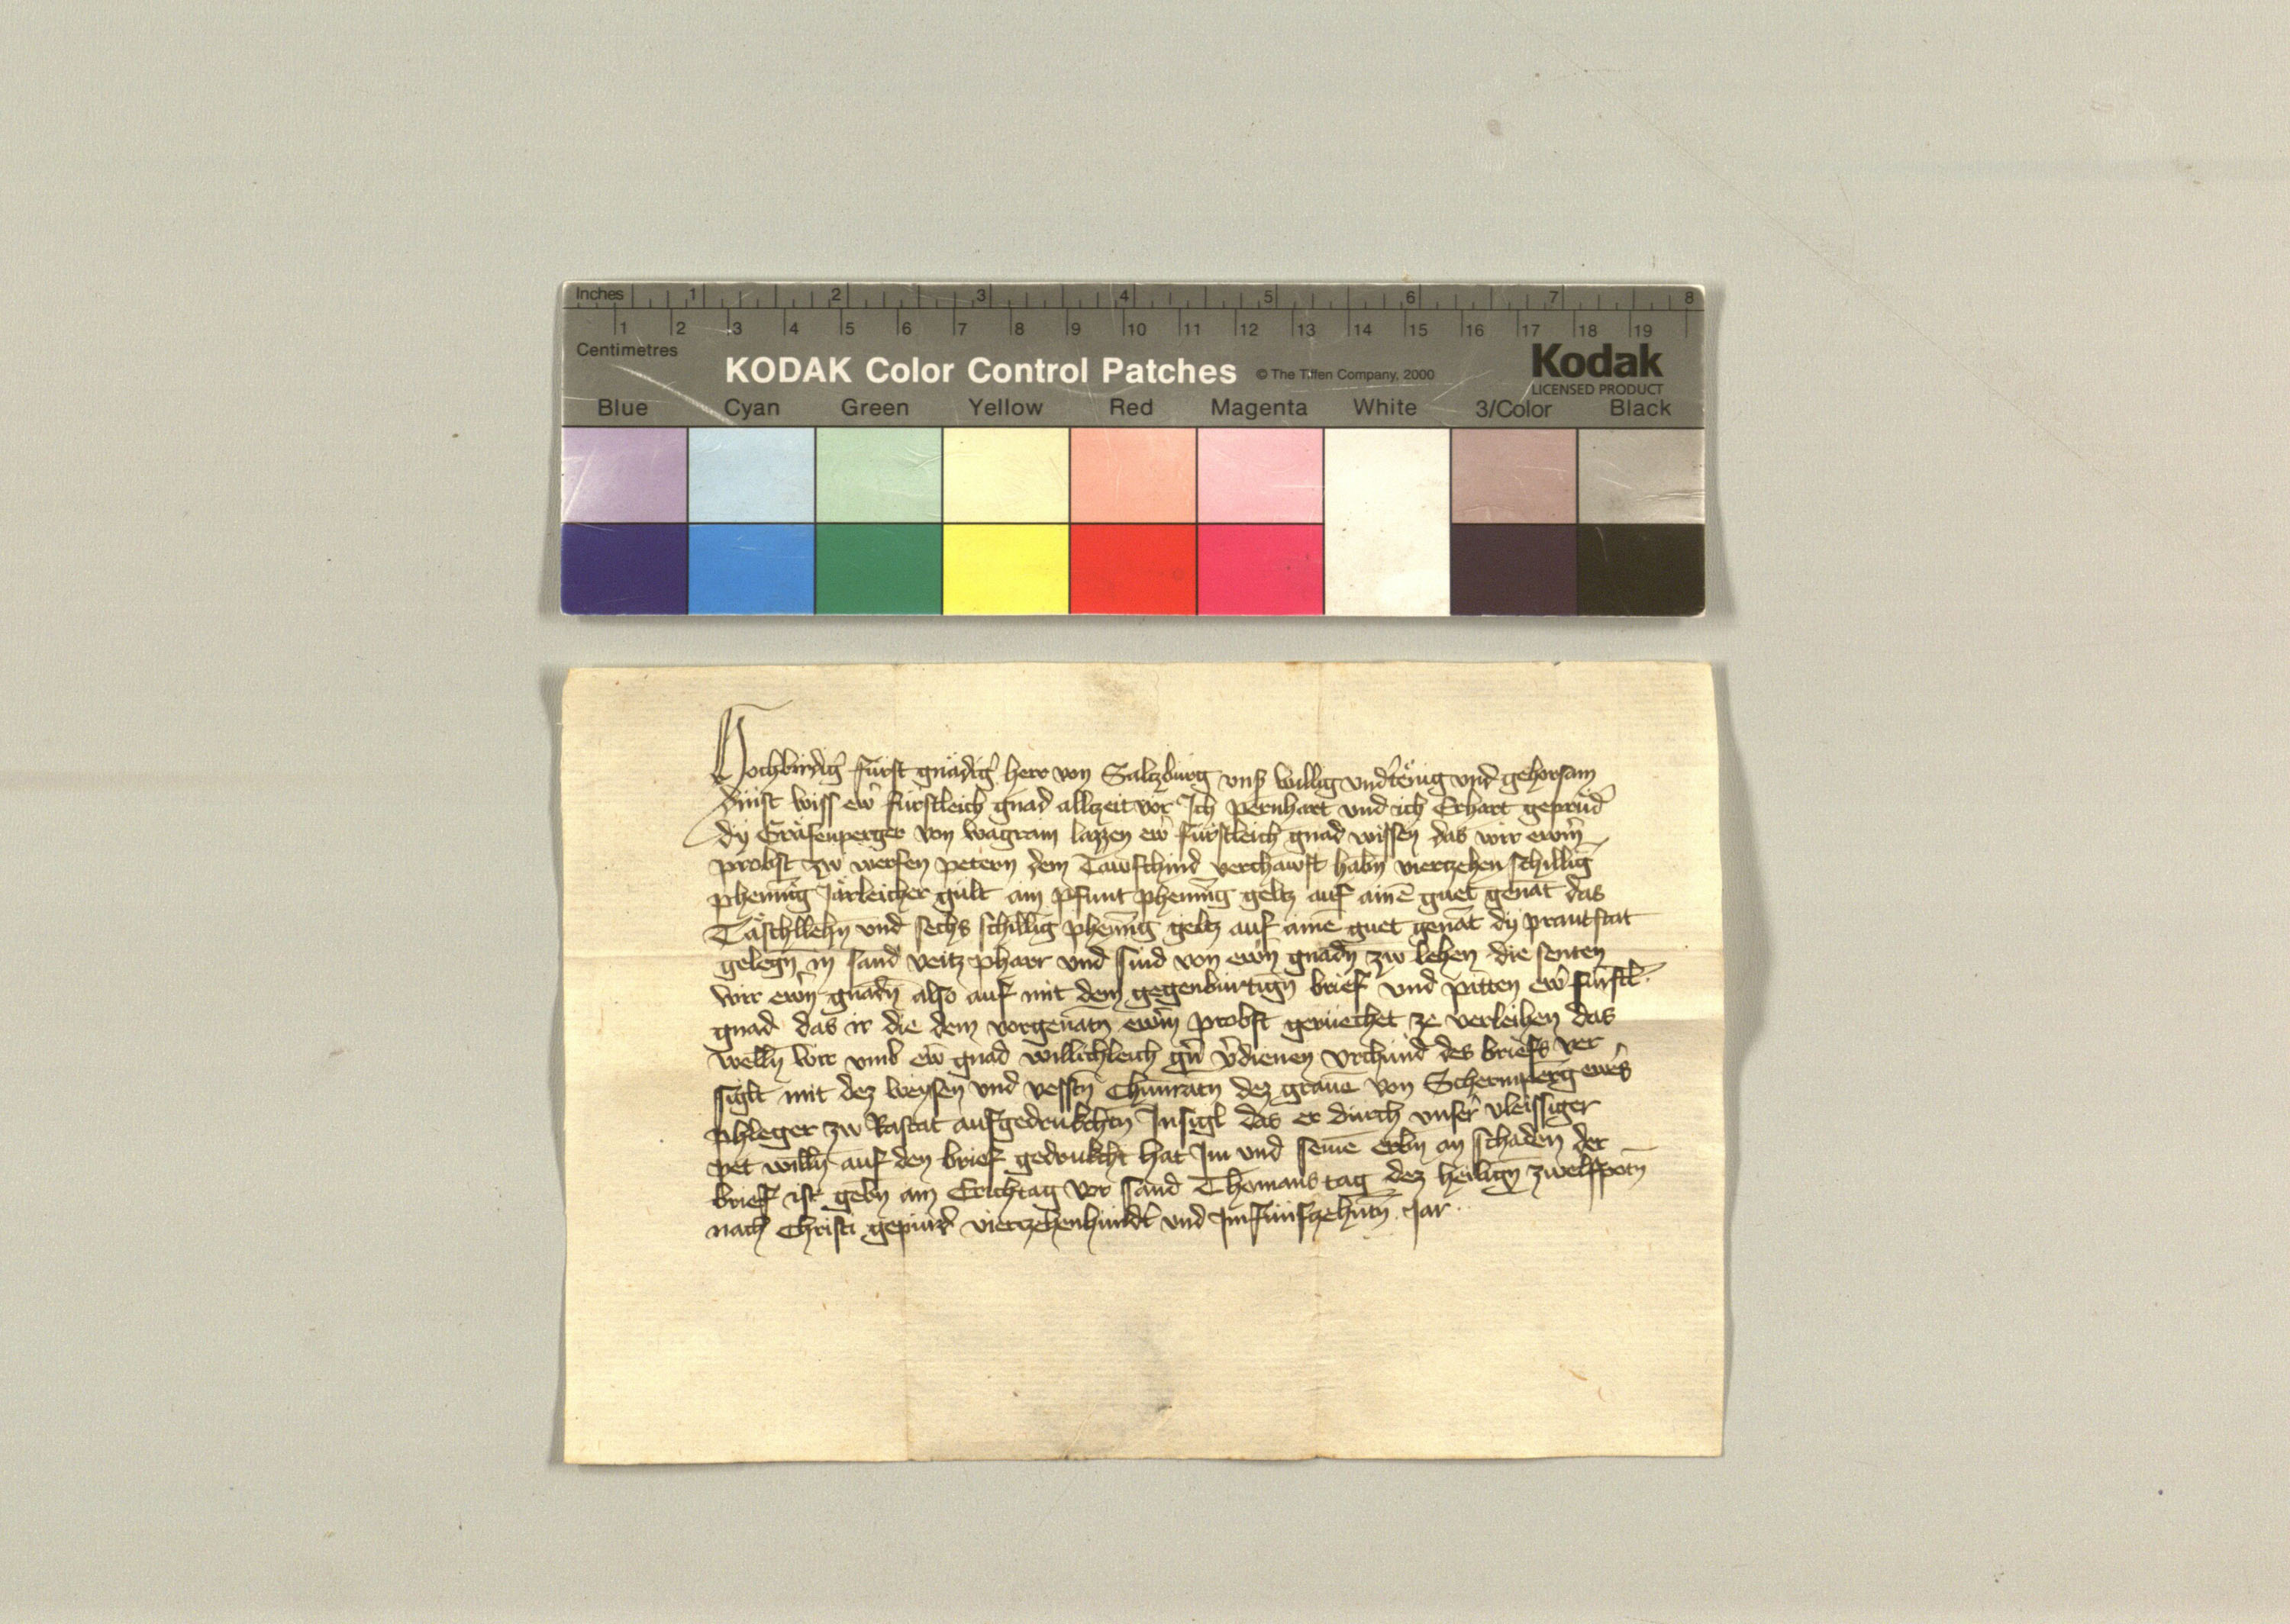 Inches 1 2 3 4 5 6 7 8
1 2 3 4 5 6 7 8 9 10 11 12 13 14 15 16 17 18 19
Centimetres
KODAK Color Control Patches © The Tiffen Company, 2000 Kodak
LICENSED PRODUCT
Blue Cyan Green Yellow Red Magenta White 3/Color Black
Hochbirdig fürst gnädig herr von Salczburg vnß willig vnd gehorsam
dinst wiss ew fürstleich gnad allczeit vor Ich Pernhart und ich Erhart geprüd
dy Gräfenperger von Wagrain lazzen ew fürstleich gnad wissen das wir ewm
probst zw werfen petern dem Tawfkind verchawft habn vierczehen schillig
phennīg Järleicher gült ain pfunt phennīg geltz auf ainē guet genāt das
Täschllehn und sechs schillig phennīg geltz auf ainē guet genāt dy prantstat
gelegn in sand veitz pharr und sind von ewn gnadn zw lehen die senten
wir ewn gnadn also auf mit dem gegenbürtign brief und pitten ew fürstl
gnad das ir die dem vorgenātn ewm probst geruechet ze verleihen das
welln wir umb ew gnad willichleich gn vdienen Vrchund des briefs ver
siglt mit dez weysen und vesstn Chunratn dez grauē von Schernperg ews
phleger zw Rastat aufgedrukchtn Insigl das er durch unser vleissiger
pet willn auf den brief gedrukcht hat Im und seinē erbn an schaden der
brief ist gebn am Erichtag vor sand Thomans tag dez heilign zwelfpotn
nach Christi gepurd vierczehenhundt und Imfünfzehntn Jar